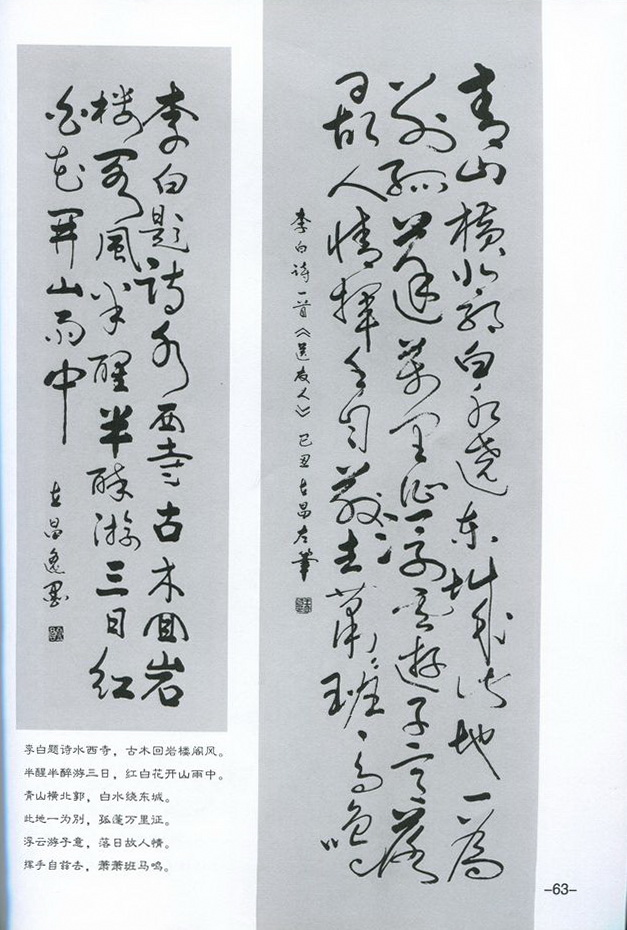 李白题诗水西寺古木回岩
楼阁風半醒半醉游三日紅
白花開山雨中
青山横北郭白水绕东城此地一為
别孤蓬萬里征浮雲遊子意落
日故人情揮手自兹去蕭蕭班马鸣
李白诗一首《送友人》己丑
李白题诗水西寺，古木回岩楼阁风。
半醒半醉游三日，红白花开山雨中。
青山横北郭，白水绕东城。
此地一为别，孤蓬万里征。
浮云游子意，落日故人情。
挥手自兹去，萧萧班马鸣。
-63-